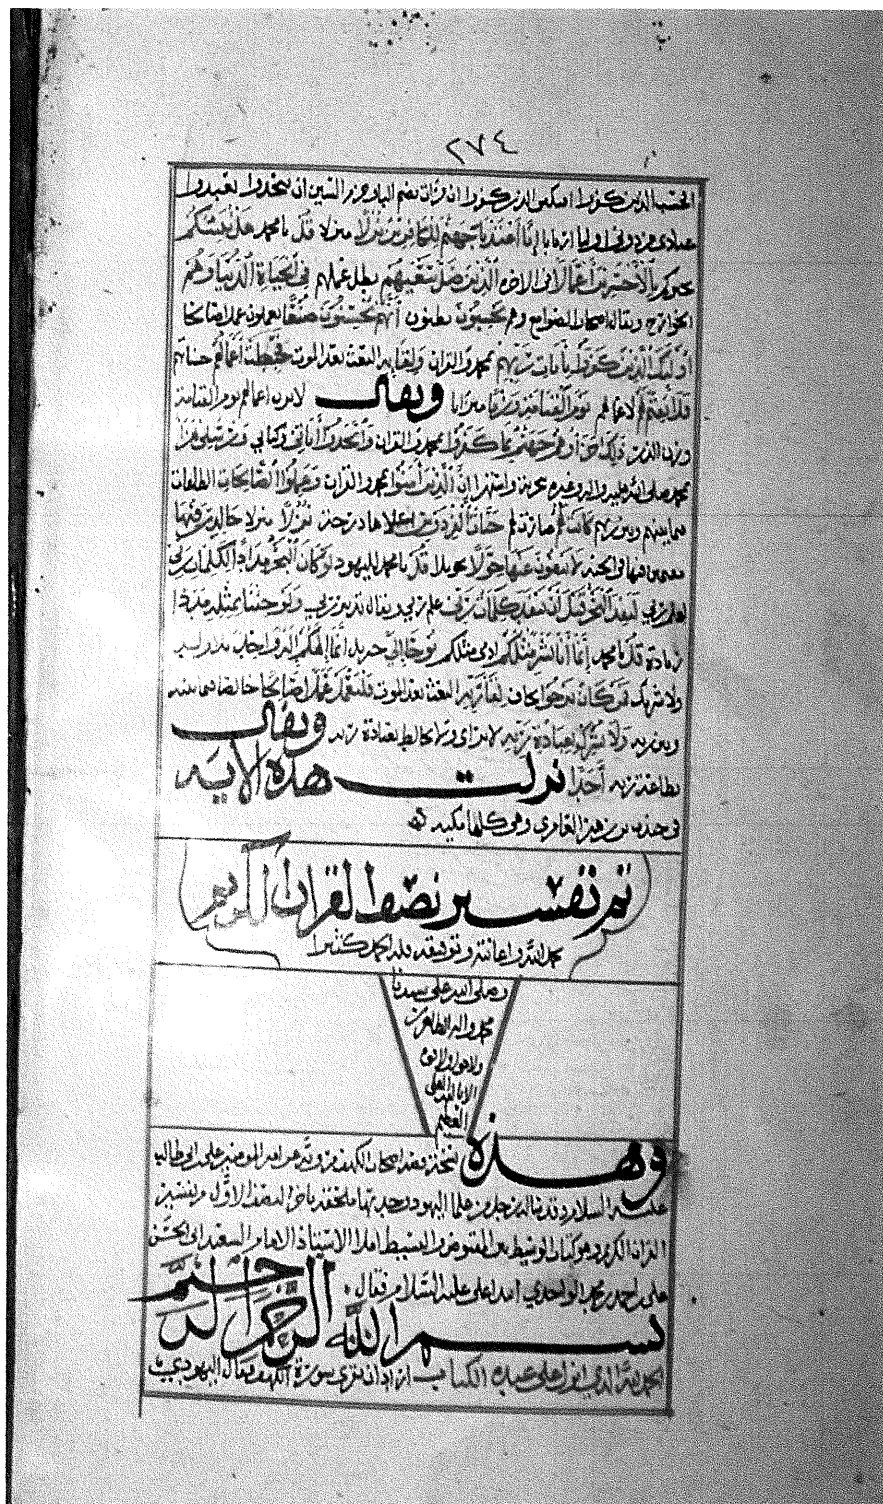 ٢٧٤
الحسب الذين كفروا افيظن الذين كفروا ان قرات بضم الباء وجزم السين ان يتخذوا يعبدوا
عبادي من دوني اوليا اربابا إنا اعتدنا جهنم للكافرين نزلا منزلا قل يا محمد هل ننبئكم
نخبركم بالأخسرين أعمالا في الاخره الذين ضل سعيهم بطل عملهم في الحياة الدنيا وهم
الخوارج ويقال اصحاب الصوامع وهم يحسبون يظنون أنهم يحسنون صنعا يعملون عملا صالحا
أولئك الذين كفروا بآيات ربهم محمد والقران ولقايه البعث بعد الموت فحبطت أعمالهم حسناتهم
فلا نقيم لهم لاعمالهم يوم القيامة وزنا ميزانا ويقال لا يوزن اعمالهم يوم القيامة
وزن الذرة ذلك جزاؤهم جهنم بما كفروا محمد والقران واتخذوا آياتي وكتابي ورسلي هزوا
محمد صلى الله عليه واله وغيره سخرية واستهزا إن الذين آمنوا محمد والقران وعملوا الصالحات الطاعات
فيما بينهم وبين ربهم كانت لهم صارت لهم جنات الفردوس اعلاها درجة نزلا منزلا خالدين فيها
مقيمين فيها في الجنة لا يبغون عنها حولا تحويلا قل يا محمد لليهود لو كان البحر مدادا لكلمات ربي
لعلم ربي لنفد البحر قبل أن تنفد كلمات ربي علم ربي ويقال تدبير ربي ولو جئنا بمثله مددا
زيادة قل يا محمد إنما أنا بشر مثلكم ادمي مثلكم يوحى إلي جبريل أنما إلهكم إله واحد بلا ولد
ولا شريك فمن كان يرجو يخاف لقاء ربه البعث بعد الموت فليعمل عملا صالحا خالصا فيما بينه
وبين ربه ولا يشرك بعبادة ربه لا يرائ ولا يخالط بعبادة ربه ويقال
بطاعة ربه أحدا نزلت هذه الآيه
في جندب بن زهير العامري وهي كلها مكيه
تم تفسير نصف القران الكريم
بحمد الله واعانته وتوفيقه فله الحمد كثيرا
وصلى الله على سيدنا
محمد واله الطاهرين
ولا حول ولا قوه
الا بالله العلي
العظيم
وهذه نسخة قصة اصحاب الكهف مروية عن امير المومنين علي بن ابي طالب
عليه السلام وقد سأله رجل من علما اليهود وجدتها ملحقة باخر النصف الاول من تفسير
القران الكريم وهو كتاب الوسيط بين المقبوض والبسيط املا الاستاذ الامام السعيد ابي الحسن
علي بن احمد بن محمد الواحدي املا علي عليه السلام فقال
بسم الله الرحمن الرحيم
الحمد لله الذي انزل على عبده الكتاب اراد ان يقرى سورة الكهف فقال اليهودي